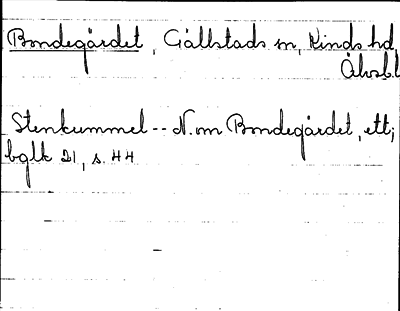 Bondegårdet, Gällstads sn, Kinds hd
Älvsb.l
Stenkummel -- N. om Bondegärdet, ett;
bglk 21, s. 44